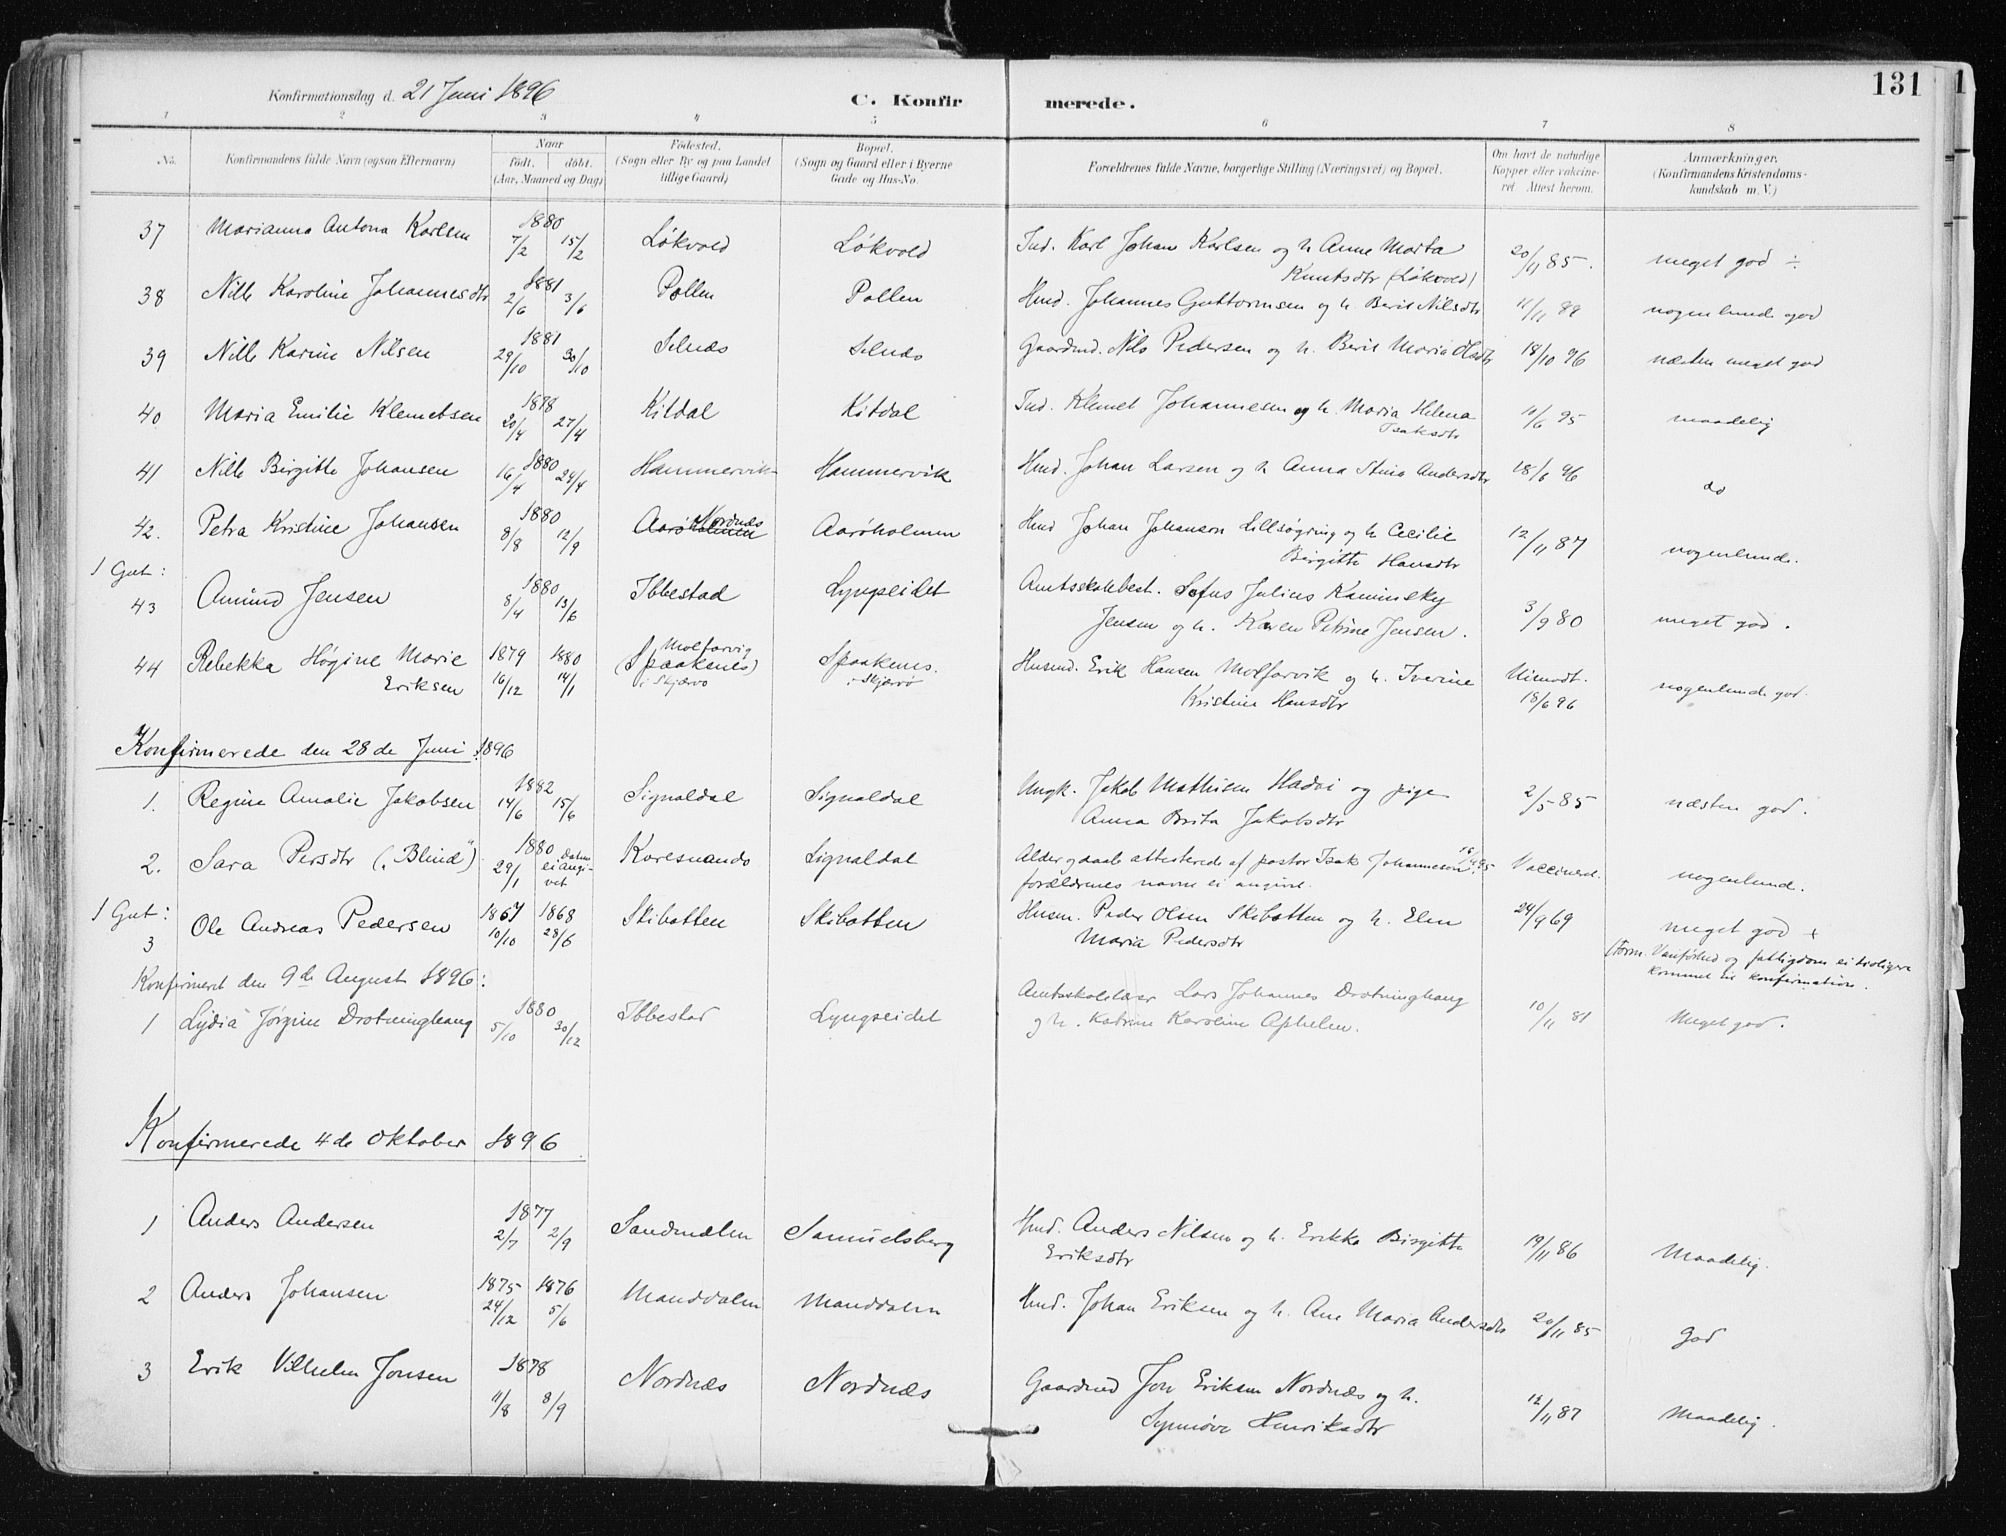 131
Konfirmationsdag d. 21 Juni 1896
C. Konfirmerede.
1 2 3 4 5 6 7 8
No. Konfirmandens fulde Navn (ogsaa Efternavn) Naar født. døbt. (Aar, Maaned og Dag) Fødested. (Sogn eller By og paa Landet tillige Gaard) Bopæl. (Sogn og Gaard eller i Byerne Gade og Hus-No. Forældrenes fulde Navne, borgerlige Stilling (Næringsvei) og Bopæl. Om havt de naturlige Kopper eller vaccineret Attest herom. Anmærkninger. (Konfirmandens Kristendomskundskab m. V.)
37 Marianna Antona Karlsen 1880 7/2 15/2 Løkvold Løkvold Ind. Karl Johan Karlsen og h Anne Marta Knutsdtr (Løkvold) 20/11 85. meget god ÷
38 Nille Karoline Johannesdtr 1881 2/6 3/6 Pollen Pollen Hmd. Johannes Guttormsen og h Berit Nilsdtr 11/11 88 nogenlunde god
39 Nille Karine Nilsen 1881 29/10 30/10 Selnæs Selnæs Gaardmd. Nils Pedersen og h. Berit Maria Olsdtr 18/10 96 næsten meget god
40 Maria Emilie Klemetsen 1878 20/4 27/4 Kitdal Kitdal Ind. Klemet Johannesen og h. Maria Helena Isaksdtr 10/6 95 maadelig
41 Nille Birgitte Johansen 1880 16/4 24/4 Hammervik Hammervik Hmd. Johan Larsen og h Anna Stina Andersdtr 18/6 96 do
42. Petra Kristine Johansen 1880 8/8 12/9 Aarøholmen Nordnæs Aarøholmen Hmd Johan Johanson Lillsøgring og h Cecilie Birgitte Hansdtr 12/11 87 nogenlunde.
1 Gut:
43 Amund Jensen 1880 8/4 13/6 Ibbestad Lyngseidet Amtsskolebest. Sofus Julius Kaminsky Jensen og h. Karen Petrine Jensen. 3/9 80 meget god.
44 Rebekka Høgine Marie Eriksen 1879 16/12 1880 14/1 Molfarvig (Spaaksnes) i Skjærvø Spaakenes. i Skjærvø Husmd. Erik Hansen Molfarvik og h. Iverine Kristine Hansdtr 18/6 96 nogenlunde god.
Konfirmerede den 28de Juni 1896
1. Regine Amalie Jakobsen 1882 14/6 15/6 Signaldal Signaldal Ungk. Jakob Mathisen Hadvi og pige Anna Brita Jakobsdtr 2/5 85 næsten god.
2. Sara Persdtr ("Blind") 1880 29/1 Datum ei angivet Karesuando Signaldal Alder og daab attesterede af pastor Isak Johannesson forældrenes navne ei angivet. Vaccineret. nogenlund.
1 Gut:
3 Ole Andreas Pedersen 1867 10/10 1868 28/6 Skibotten Skibotten Husm. Peder Olsen Skibotten og h. Elen Maria Pedersdtr 24/9 69 meget god + (Form. Vanførhed og fattigdom ei tidligere kommet til konfirmation.
Konfirmeret den 9de August 1896:
1 Lydia Jørgine Drotninghaug 1880 5/10 30/12 Ibbestad Lyngseidet Amtsskolelærer Lars Johannes Drotninghaug og h. Katrine Karoline Aphelen. 10/11 81 Meget god.
Konfirmerede 4de Oktober 1896
1 Anders Andersen 1877 2/7 2/9 Sandmælen Samuelsberg Hmd. Anders Nilsen og h. Erikka Birgitte Eriksdtr 19/11 86 Maadelig.
2 Anders Johansen 1875 24/12 1876 5/6 Manddalen Manddalen Hmd. Johan Eriksen og h. Ane Maria Andersdtr 20/11 85 God
3 Erik Vilhelm Jonsen 1878 11/8 8/9 Nordnæs Nordnæs Gaardmd Jon Eriksen Nordnæs og h. Synnøve Henriksdtr 12/11 87 Maadelig.